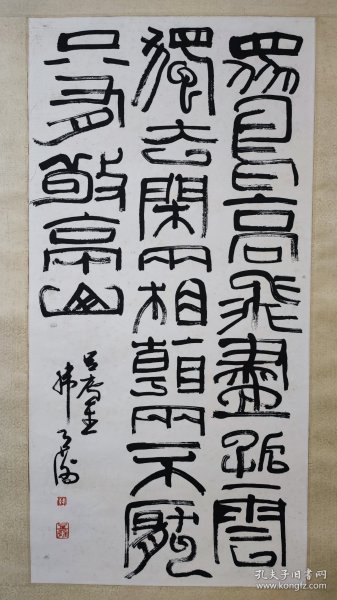 眾鳥高飛盡孤雲
獨去閑相看兩不厭
只有敬亭山
孔夫子旧书网